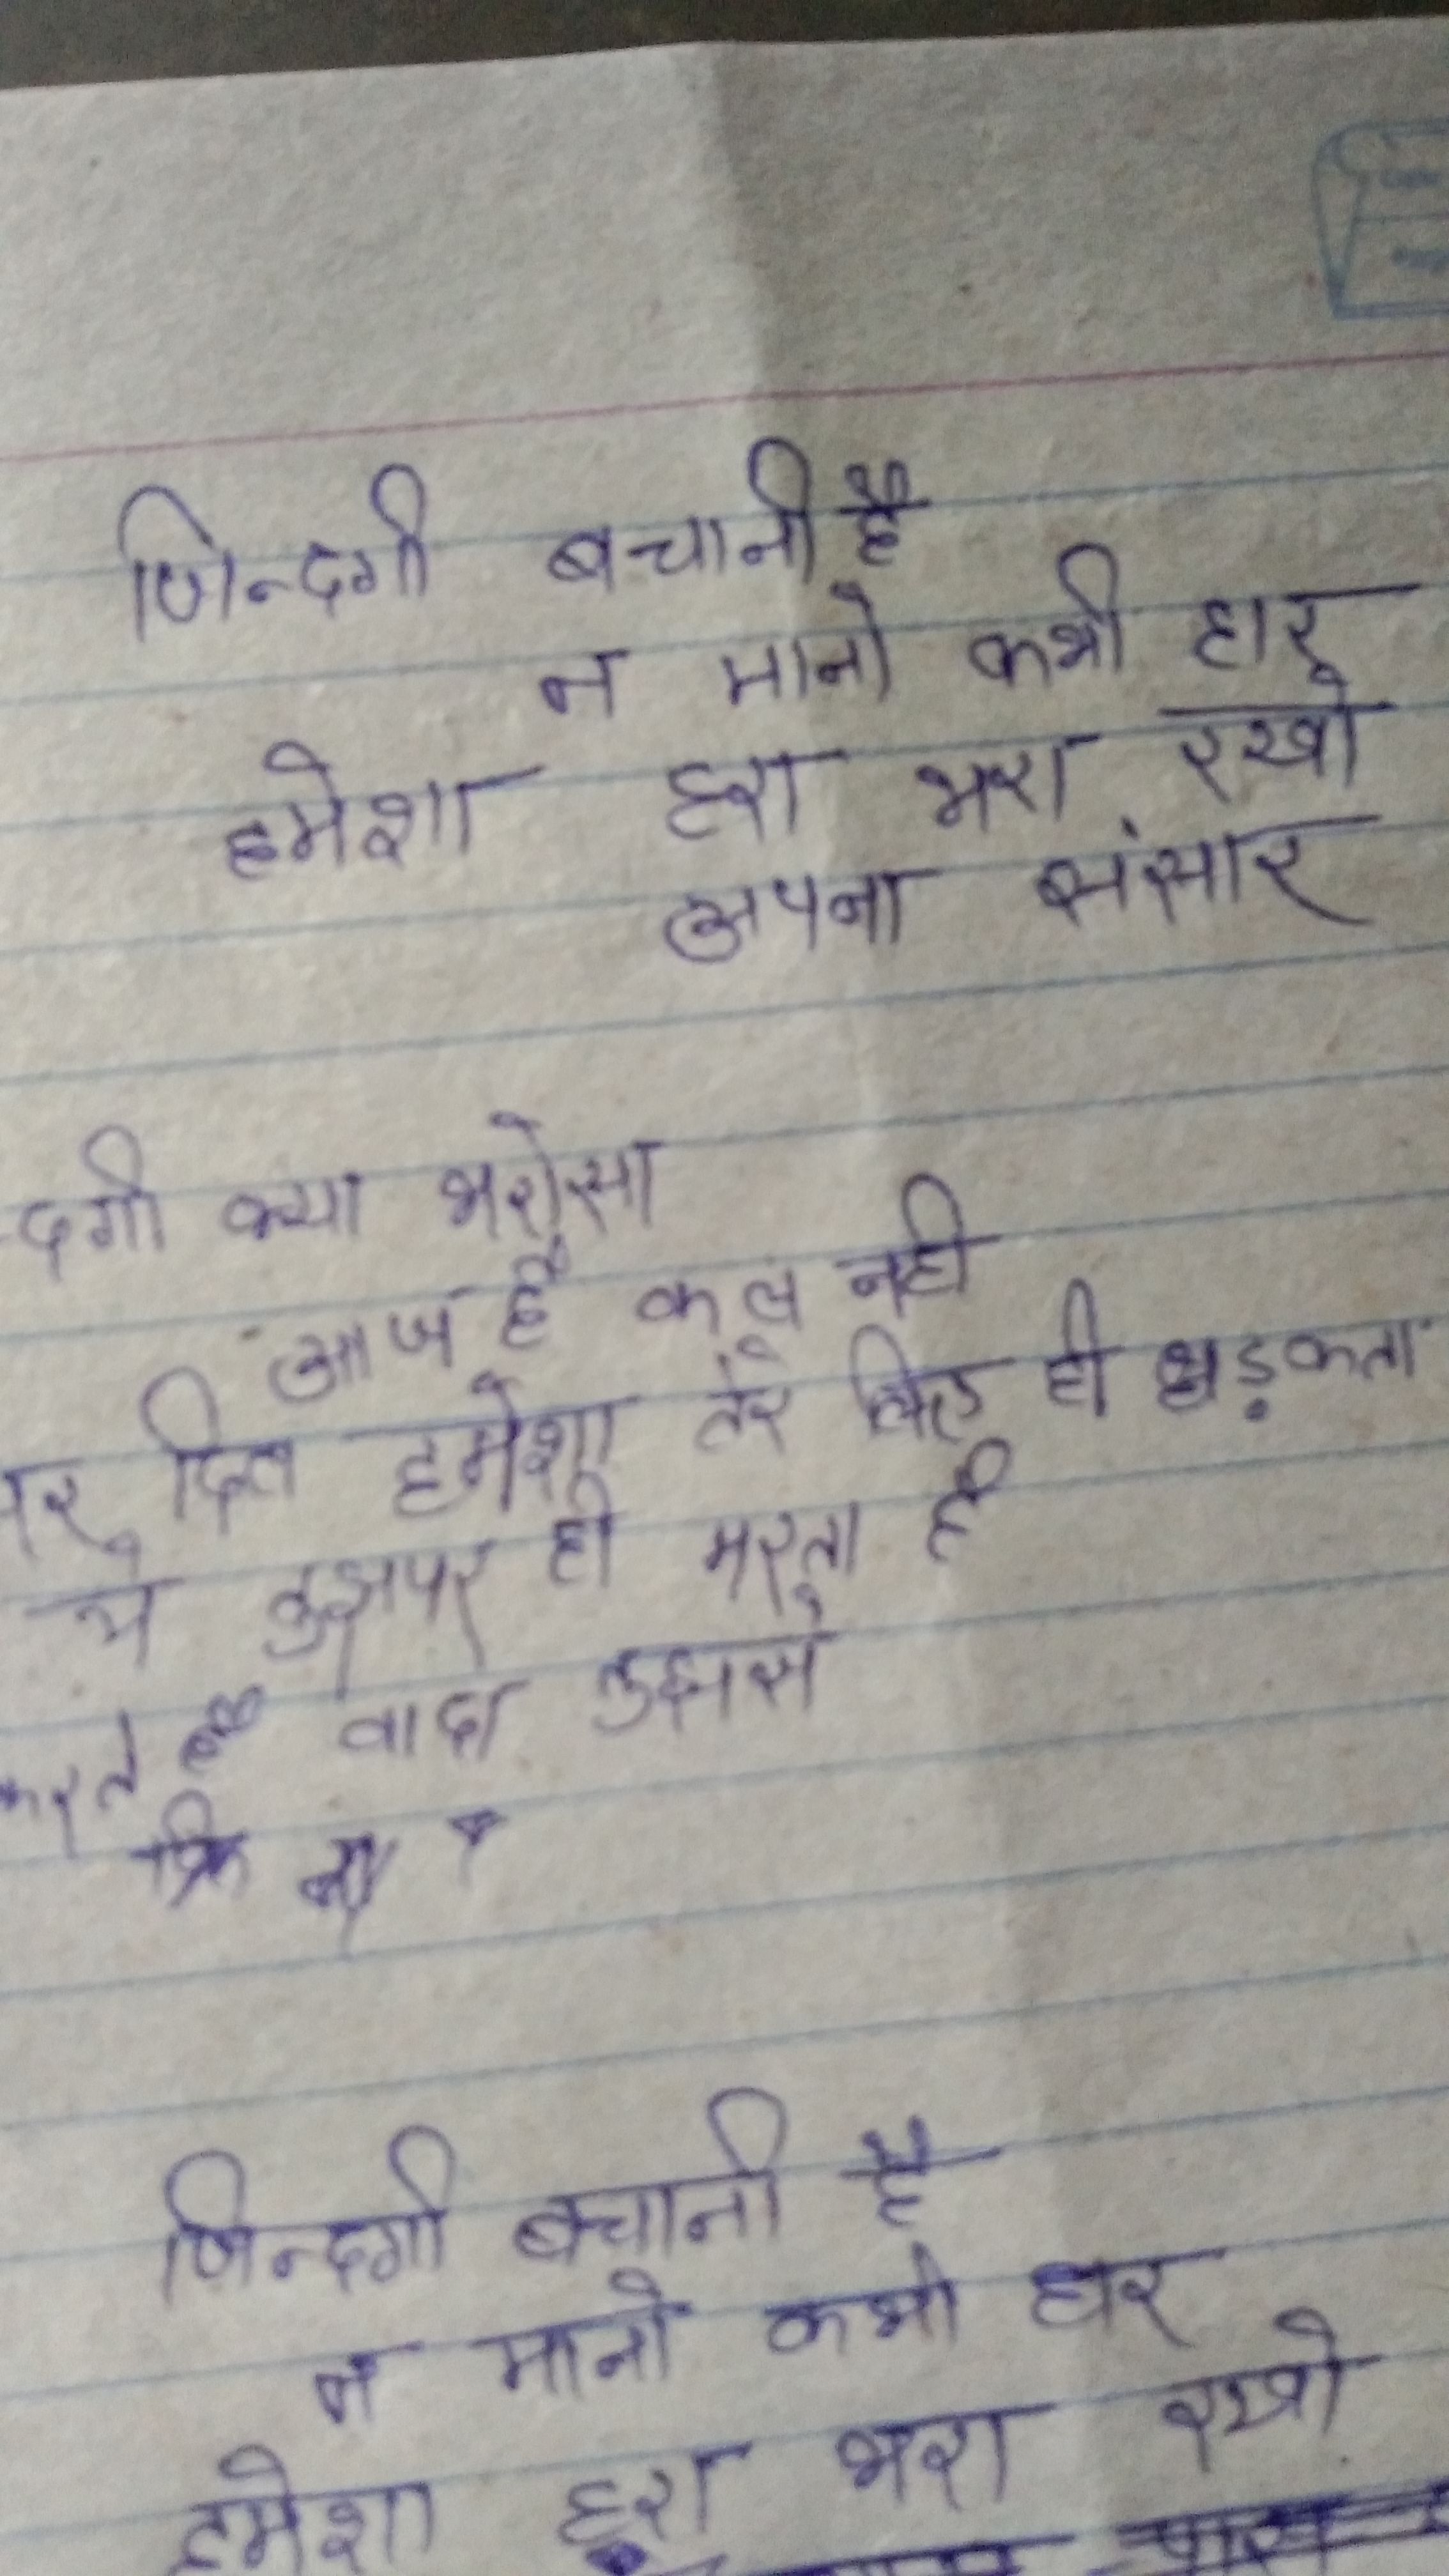 जिन्दगी बचानी है
न मानो कभी हार
हमेशा हरा भरा रखो
अपना संसार
दगी क्या भरोसा
आज है कल नही
दिल हमेशा तेरे लिए ही धड़कता
ये तुझपर ही मरता है
करते है वादा तुझसे
कि
जिन्दगी बचानी है
न मानो कभी हार
हमेशा हरा भरा रखो